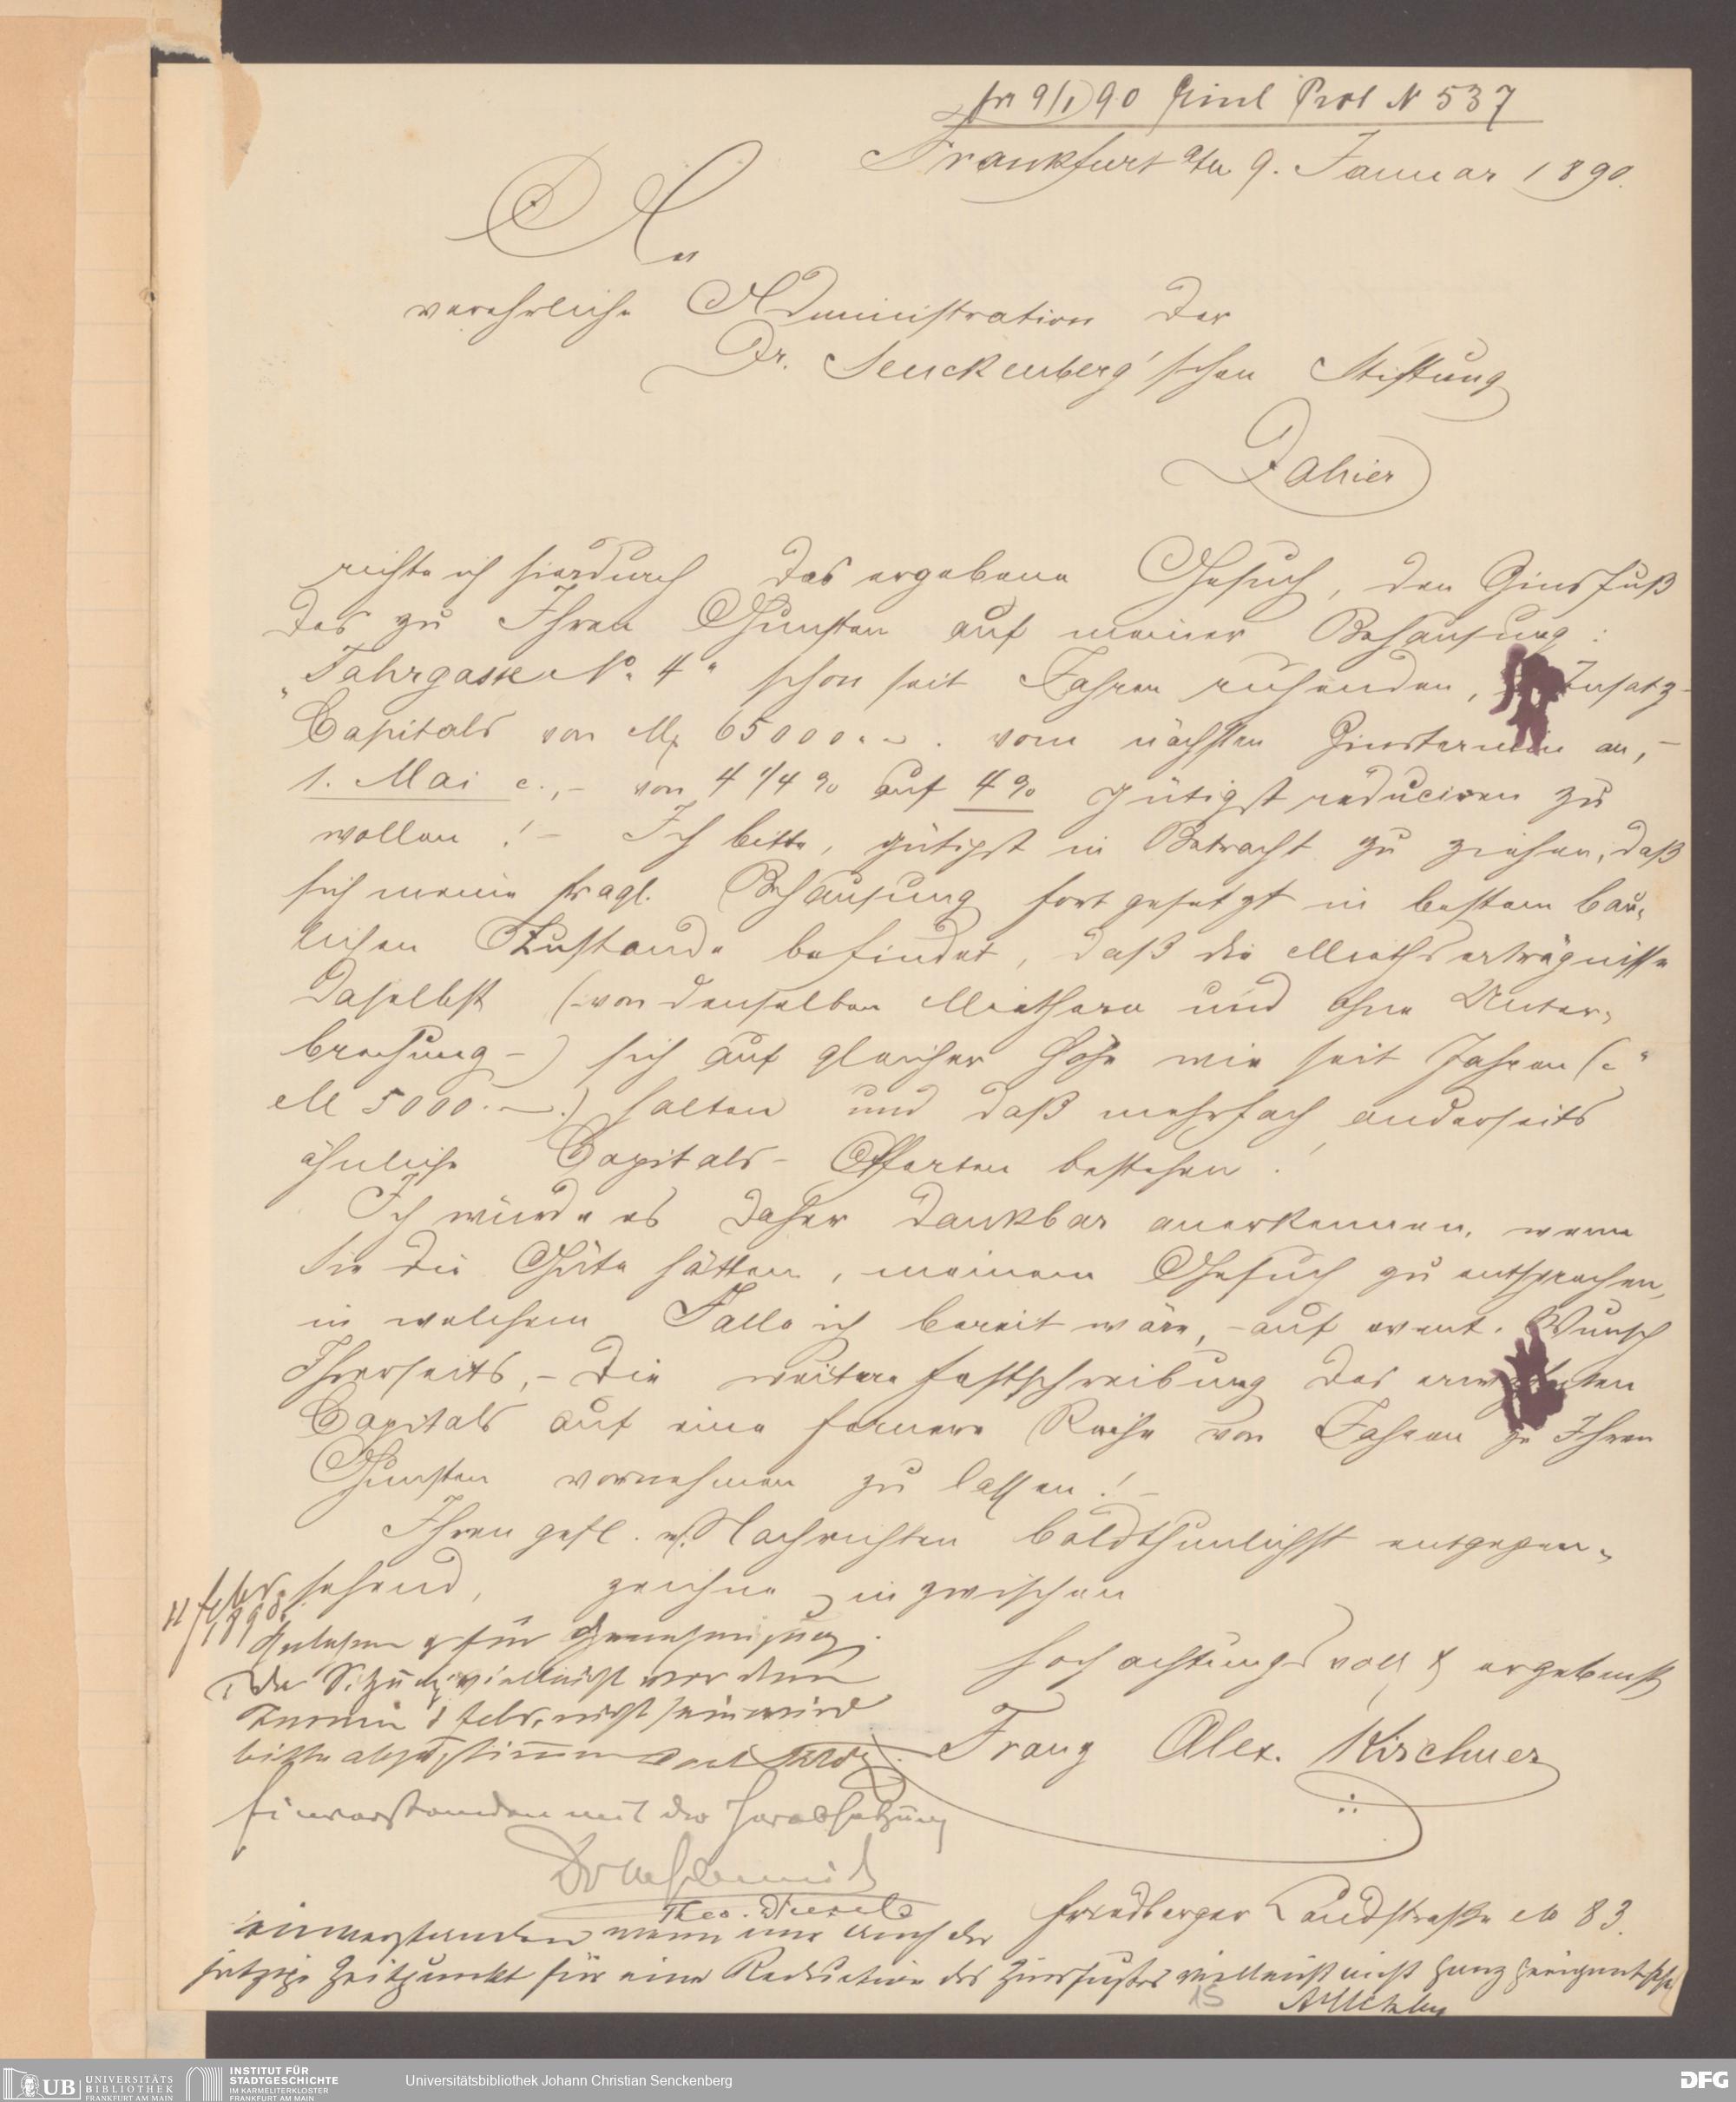 pr 9/1 90 Einl Prot N 537
Frankfurt a/M 9. Januar 1890.
An
verehrliche Administration der
Dr. Senckenberg'schen Stiftung
Dahier
richte ich hierdurch das ergebene Gesuch, den Zinsfuß
des zu Ihren Gunsten auf meiner Behausung:
"Fahrgasse No. 4" schon seit Jahren ruhenden, Insatz-
Capitals von M 65000.–. vom nächsten Zinstermin an,–
1. Mai c.,– von 4 1/4 % auf 4 % gütigst reduciren zu
wollen!– Ich bitte, gütigst in Betracht zu ziehen, daß
sich meine fragl. Behausung fortgesetzt in bestem bau-
lichen Zustande befindet, daß die Miethserträgnisse
daselbst (–von denselben Miethern und ohne Unter-
brechung–) sich auf gleicher Höhe wie seit Jahren (ca
M 5000.–.) halten und daß mehrfach anderseits
ähnliche Capitals-Offerten bestehen!
Ich würde es daher dankbar anerkennen, wenn
Sie die Güte hätten, meinem Gesuch zu entsprechen,
in welchem Falle ich bereit wäre, –auf event. Wunsch
Ihrerseits,– die weitere Festschreibung des erwähnten
Capitals auf eine fernere Reihe von Jahren zu Ihren
Gunsten vornehmen zu lassen!–
Ihren gefl. Nachrichten baldthunlichst entgegen-
sehend, zeichne inzwischen
Gelesen & für Genehmigung.
Da Sitzung vielleicht vor dem
Termin 1 Febr. nicht sein wird
bitte abzustimmen
hochachtungsvoll & ergebenst
Franz Alex. Kirchner
Einverstanden mit der Herabsetzung
Theo.
Friedberger Landstraße No 83.
einverstanden wenn mir auch der
jetzige Zeitpunkt für eine Reduction des Zinsfußes vielleicht nicht ganz geeignet
15
UB UNIVERSITÄTS
BIBLIOTHEK
FRANKFURT AM MAIN
INSTITUT FÜR
STADTGESCHICHTE
IM KARMELITERKLOSTER
FRANKFURT AM MAIN
Universitätsbibliothek Johann Christian Senckenberg
DFG